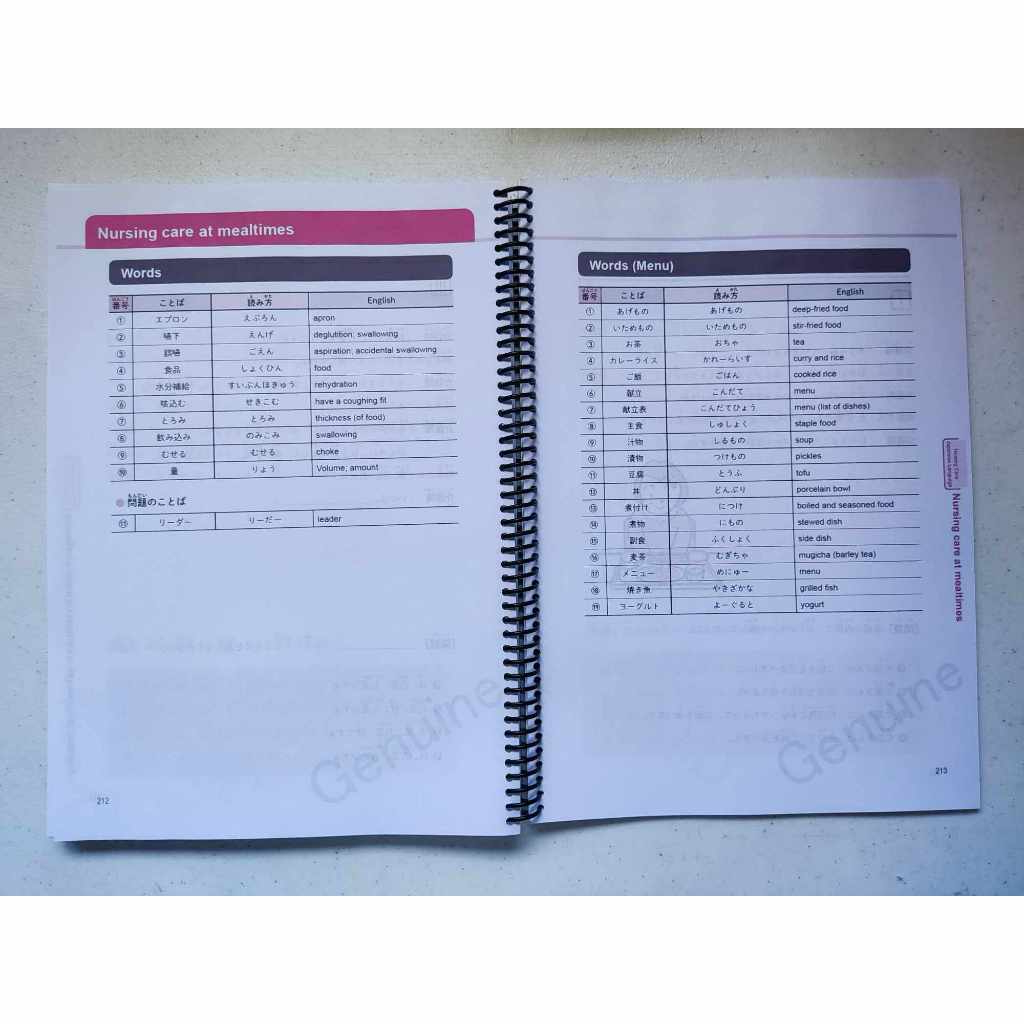 Nursing care at mealtimes
Words
ばんごう よ かた
番号 ことば 読み方 English
① エプロン えぷろん apron
② 嚥下 えんげ deglutition; swallowing
③ 誤嚥 ごえん aspiration; accidental swallowing
④ 食品 しょくひん food
⑤ 水分補給 すいぶんほきゅう rehydration
⑥ 咳込む せきこむ have a coughing fit
⑦ とろみ とろみ thickness (of food)
⑧ 飲み込み のみこみ swallowing
⑨ むせる むせる choke
⑩ 量 りょう Volume; amount
もんだい
問題のことば
⑪ リーダー りーだー leader
212
Words (Menu)
ばんごう よ かた
番号 ことば 読み方 English
① あげもの あげもの deep-fried food
② いためもの いためもの stir-fried food
③ お茶 おちゃ tea
④ カレーライス かれーらいす curry and rice
⑤ ご飯 ごはん cooked rice
⑥ 献立 こんだて menu
⑦ 献立表 こんだてひょう menu (list of dishes)
⑧ 主食 しゅしょく staple food
⑨ 汁物 しるもの soup
⑩ 漬物 つけもの pickles
⑪ 豆腐 とうふ tofu
⑫ 丼 どんぶり porcelain bowl
⑬ 煮付け につけ boiled and seasoned food
⑭ 煮物 にもの stewed dish
⑮ 副食 ふくしょく side dish
⑯ 麦茶 むぎちゃ mugicha (barley tea)
⑰ メニュー めにゅー menu
⑱ 焼き魚 やきざかな grilled fish
⑲ ヨーグルト よーぐると yogurt
Nursing Care
Japanese Language
Nursing care at mealtimes
213
Genuine
Genuine